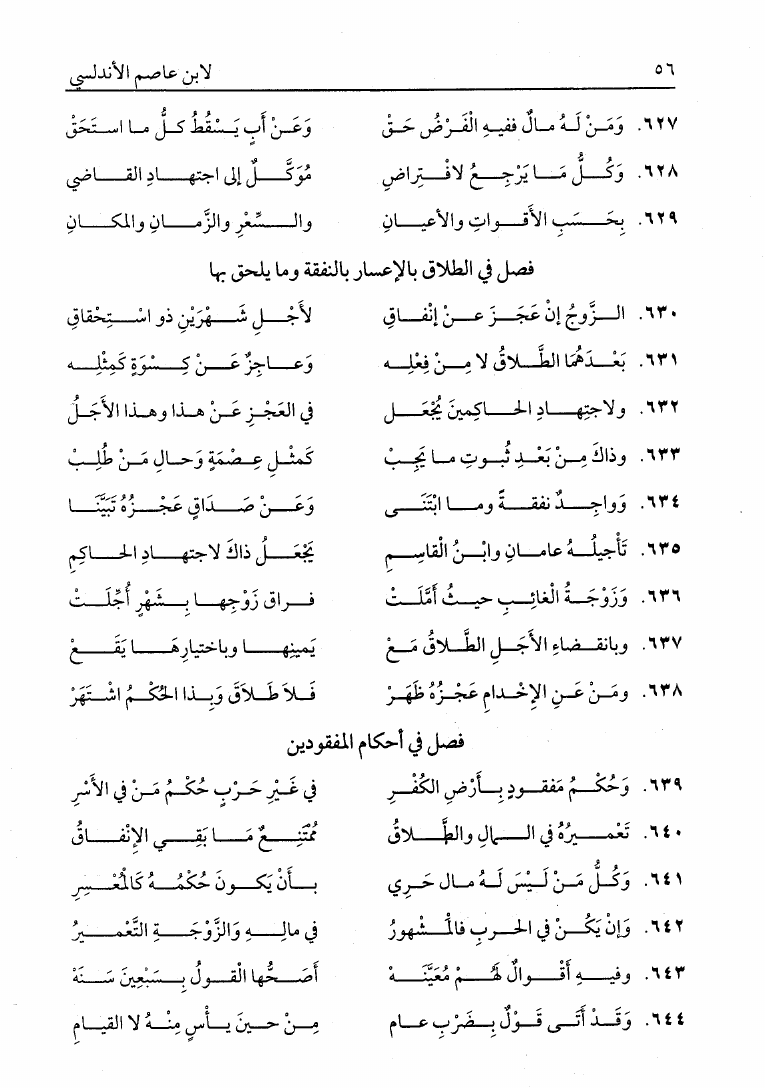 ٥٦ لابن عاصم الأندلسي
٦٢٧. وَمَنْ لَهُ مالٌ ففيهِ الْفَرْضُ حَقْ وَعَنْ أَبٍ يَسْقُطُ كلُّ ما استَحَقْ
٦٢٨. وَكُلُّ مَا يَرْجِعُ لافْتِراضِ مُوَكَّلٌ إلى اجتهادِ القاضي
٦٢٩. بِحَسَبِ الأقواتِ والأعيانِ والسِّعْرِ والزَّمانِ والمكانِ
فصل في الطلاق بالإعسار بالنفقة وما يلحق بها
٦٣٠. الزَّوجُ إنْ عَجَزَ عنْ إنْفاقِ لأَجْلِ شَهْرَيْنِ ذو اسْتِحْقاقِ
٦٣١. بَعْدَهُمَا الطَّلاقُ لا مِنْ فِعْلِه وَعاجِزٌ عَنْ كِسْوَةٍ كَمِثْلِه
٦٣٢. ولاجتهادِ الحاكمينَ يُجْعَل في العَجْزِ عَنْ هذا وهذا الأجَلُ
٦٣٣. وذاكَ مِنْ بَعْدِ ثُبوتِ ما يَجِبْ كَمثْلِ عِصْمَةٍ وَحالِ مَنْ طُلِبْ
٦٣٤. وَواجِدٌ نفقةً وما ابْتَنَى وَعَنْ صَداقٍ عَجْزُهُ تَبَيَّنَا
٦٣٥. تَأجيلُهُ عامانِ وابْنُ القاسِمِ يَجْعَلُ ذاكَ لاجتهادِ الحاكِمِ
٦٣٦. وَزَوْجَةُ الْغائِبِ حيثُ أمَّلَتْ فراق زَوْجِها بِشَهْرٍ أُجِّلَتْ
٦٣٧. وبانقضاءِ الأجَلِ الطَّلاقُ مَعْ يَمينِها وباختيارِهَا يَقَعْ
٦٣٨. ومَنْ عَنِ الإخْدامِ عَجْزُهُ ظَهَرْ فَلاَ طَلاَقَ وَبِذا الحُكْمُ اشْتَهَرْ
فصل في أحكام المفقودين
٦٣٩. وَحُكْمُ مَفقودٍ بِأَرْضِ الكُفْرِ في غَيْرِ حَرْبٍ حُكْمُ مَنْ في الأَسْرِ
٦٤٠. تَعْميرُهُ في المالِ والطَّلاقُ مُمْتَنِعٌ مَا بَقِي الإنْفاقُ
٦٤١. وَكُلُّ مَنْ لَيْسَ لَهُ مال حَرِي بأَنْ يَكونَ حُكْمُهُ كَالْمُعْسِرِ
٦٤٢. وَإنْ يَكُنْ في الحربِ فالمشهورُ في مالِهِ وَالزَّوْجَةِ التَّعْميرُ
٦٤٣. وفيهِ أقْوالٌ لهُمْ مُعَيَّنَهْ أصَحُّها القولُ بِسَبْعِينَ سَنَهْ
٦٤٤. وَقَدْ أتَى قَوْلٌ بِضَرْبِ عام مِنْ حينِ يأْسٍ مِنْهُ لا القيامِ